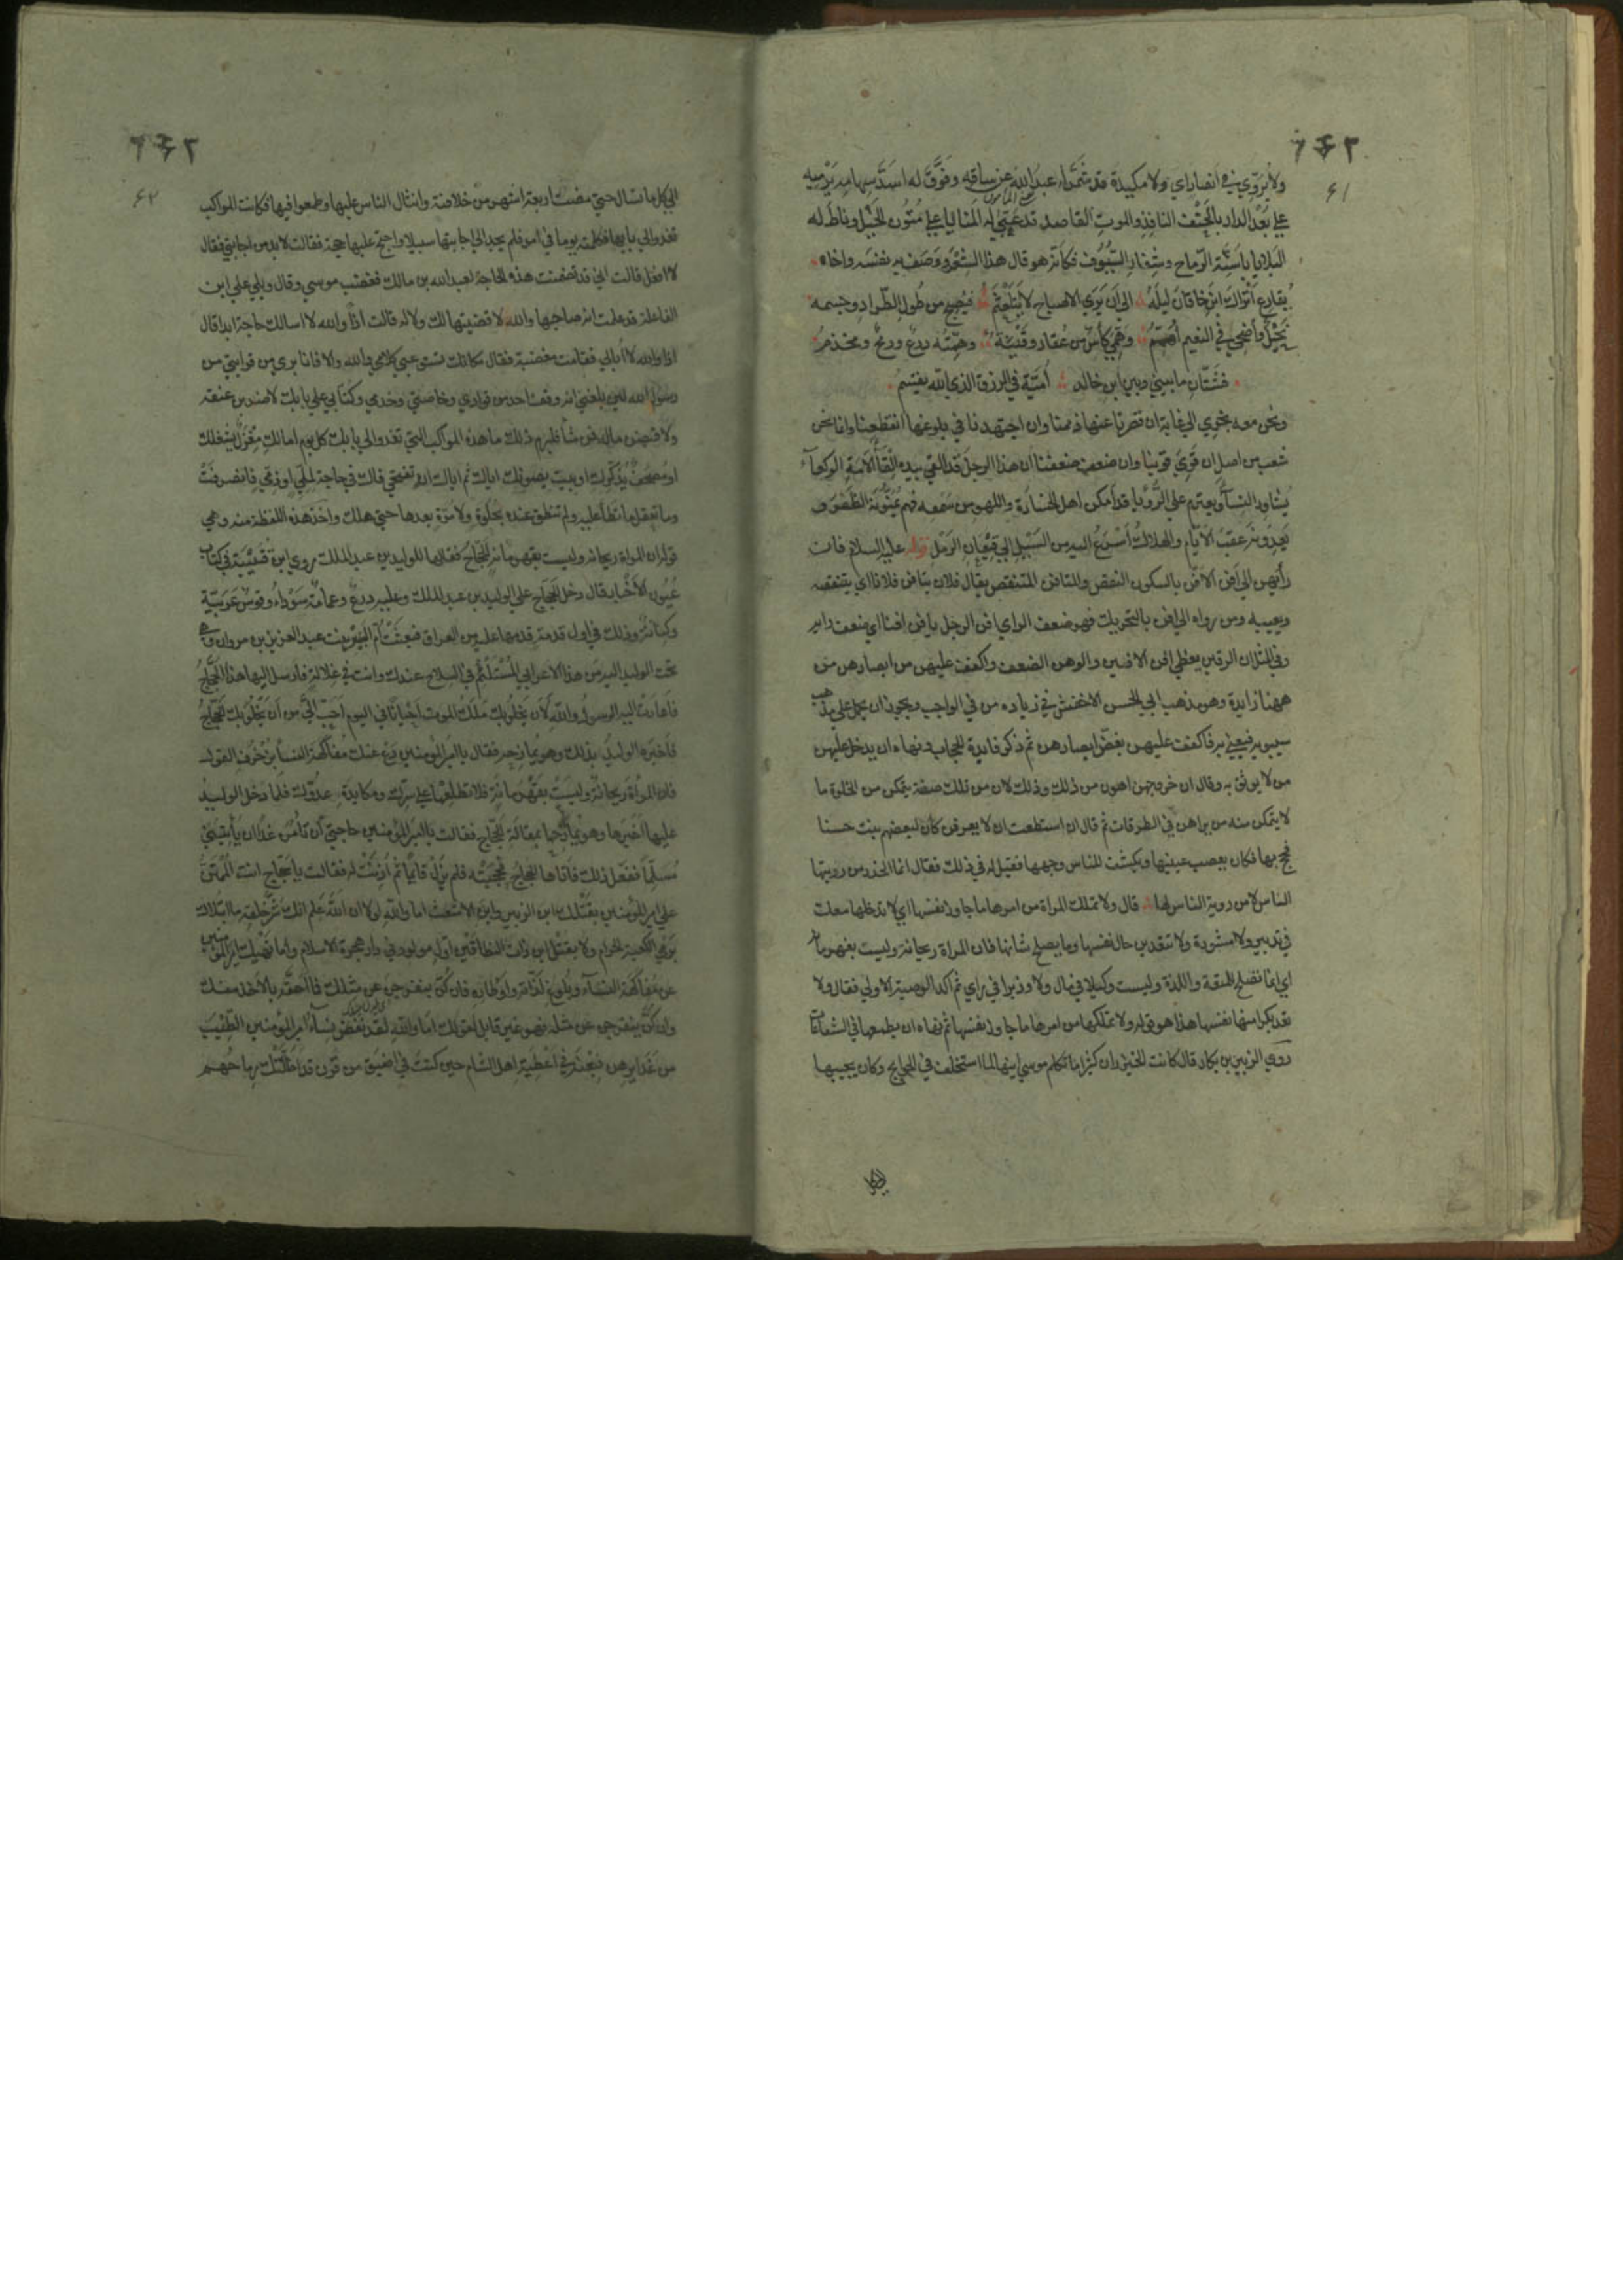 ۶۱
ولا يروي في انضاراي ولا مكيدة قد شمر له عبدالله عن ساقه وفوق له اسد سهامه يرميه
علي بعد الدار بالحتف النافذ والموت القاصد قد عبي له المنايا علي متون الخيل وناط له
البلايا باسنة الرماح وشفار السيوف فكانه هو قال هذا الشعر ووصف به نفسه واخاه
يقارع اتراك ابن خاقان ليله الي ان يري الاصباح لا يتلعثم فيصبح من طول الطراد وجسمه
نحيل واضحي في النعيم اصمم وهمي كأس من عقار وقينة وهمته درع ورمح ومخذم
فشتان ما بيني وبين ابن خالد امية في الرزق الذي الله يقسم
ونحن معه نجري الي غاية ان قصرنا عنها ذممنا وان اجتهدنا في بلوغها انقطعنا وانما نحن
شعب من اصل ان قوي قوينا وان ضعف ضعفنا ان هذا الرجل قد القي بيده القاء الامة الوكعاء
يشاور النساء ويعتزم علي الرؤيا قد امكن اهل الخسارة واللهو من سمعه فهم يمنونه الظفر و
يعدونه عقب الايام والهلاك اسرع اليه من السيل الي قيعان الرمل قوله عليه السلام فان
رأيهن الي افن الافن بالسكون النقص والمتافن المتنقص يقال فلان يتافن فلانا اي يتنقصه
ويعيبه ومن رواه الي افن بالتحريك فهو ضعف الراي افن الرجل يافن افنا اي ضعف رايه
وفي المثل ان الرقين يغطي افن الافين والوهن الضعف واكفف عليهن من ابصارهن من
ههنا زايدة وهو مذهب ابي الحسن الاخفش في زياده من في الواجب ويجوز ان يحمل علي مذهب
سيبويه فيعني به فاكفف عليهن بعض ابصارهن ثم ذكر فايدة الحجاب ونهاه ان يدخل عليهن
من لا يوثق به وقال ان خروجهن اهون من ذلك وذلك لان من تلك صفته يتمكن من الخلوة ما
لا يتمكن منه من يراهن في الطرقات ثم قال ان استطعت ان لا يعرفن كان لبعضهم بنت حسنا
فحج بها فكان يعصب عينيها ويكشف للناس وجهها فقيل له في ذلك فقال انما الحذر من رويتها
الناس لا من روية الناس لها قال ولا تملك المراة من امرها ما جاوز نفسها اي لا تدخلها معك
في تدبير ولا مشورة ولا تتعدين حال نفسها وما يصلح شانها فان المراة ريحانة وليست بقهرمانه
اي انما تصلح للمتعة واللذة وليست وكيلا في مال ولا وزيرا في راي ثم اكد الوصية الاولي فقال ولا
تعد بكرامتها نفسها هذا هو قوله ولا تملكها من امرها ما جاوز نفسها ثم نهاه ان يطمعها في الشفاعات
روي الزبير بن بكار قال كانت الخيزران كثيرا ما تكلم موسي ابنها لما استخلف في الحوايج وكان يجيبها
۶۲
الي كل ما تسال حتي مضت اربعة اشهر من خلافته وانثال الناس عليها وطمعوا فيها فكانت المواكب
تغدوا الي بابها فكلمته يوما في امر فلم يجد الي اجابتها سبيلا واحتج عليها بحجة فقالت لابد من اجابتي فقال
لا افعل قالت اني قد ضمنت هذه الحاجة لعبد الله بن مالك فغضب موسي وقال ويلي علي ابن
الفاعلة قد علمت انه صاحبها والله لا قضيتها لك ولا له قالت اذا والله لا اسالك حاجة ابدا قال
اذا والله لا ابالي فقامت مغضبة فقال مكانك تستوعبي كلامي والله والا فانا بري من قرابتي من
رسول الله لئن بلغني انه وقف احد من قوادي وخاصتي وخدمي وكتابي علي بابك لاضربن عنقه
ولاقبضن ماله فمن شا فليرم ذلك ما هذه المواكب التي تغدوا الي بابك كل يوم اما لك مغزل يشغلك
او مصحف يذكرك او بيت يصونك اياك ثم اياك ان تفتحي فاك في حاجة لملي او ذمي فانصرفت
وما تعقل ما تطأ عليه ولم تنطق عنده بحلوة ولا مرة بعدها حتي هلك واخذ هذه اللفظة منه وهي
قوله ان المراة ريحانة وليست بقهرمانة الحجاج فقالها للوليد بن عبد الملك روي ابن قتيبة في كتاب
عيون الاخبار قال دخل الحجاج علي الوليد بن عبد الملك وعليه درع وعمامة سوداء وقوس عربية
وكنانة وذلك في اول قدمة قدمها عليه من العراق فبعثت ام البنين بنت عبد العزيز بن مروان وهي
تحت الوليد اليه من هذا الاعرابي المستلئم في السلاح عندك وانت في غلالة فارسل اليها هذا الحجاج
فاعادت اليه الرسول والله لان يخلوبك ملك الموت احيانا في اليوم احب الي من ان يخلو بك الحجاج
فاخبره الوليد بذلك وهو يمازحه فقال يا امير المومنين دع عنك مفاكهة النسا بزخرف القول
فان المرأة ريحانة وليست بقهرمانة فلا تطلعها علي سرك ومكايدة عدوك فلما دخل الوليد
عليها اخبرها وهو يمازحها بمقالة الحجاج فقالت يا امير المومنين حاجتي ان تأمره غدا ان يأتيني
مسلما ففعل ذلك فاتاها الحجاج فحجبته فلم يزل قائما ثم اذنت له فقالت يا حجاج انت الممتن
علي امير المومنين بقتلك ابن الزبير وابن الاشعث اما والله لولا ان الله علم انك شر خلقه ما ابتلاك
برمي الكعبة الحرام ولا بقتل ابن ذات النطاقين اول مولود في دار هجرة الاسلام واما نهيك امير المومنين
عن مفاكهة النساء وبلوغ لذاته واوطاره فان كن ينفرجن عن مثلك فما احقه بالاخذ منك
وان كن ينفرجن عن مثله فهو غير قابل لقولك اما والله لقد نفض نساء امير المومنين الطيب
من غدايرهن فبعنه في اعطية اهل الشام حين كنت في اضيق من قرن قد اظلتك رماحهم